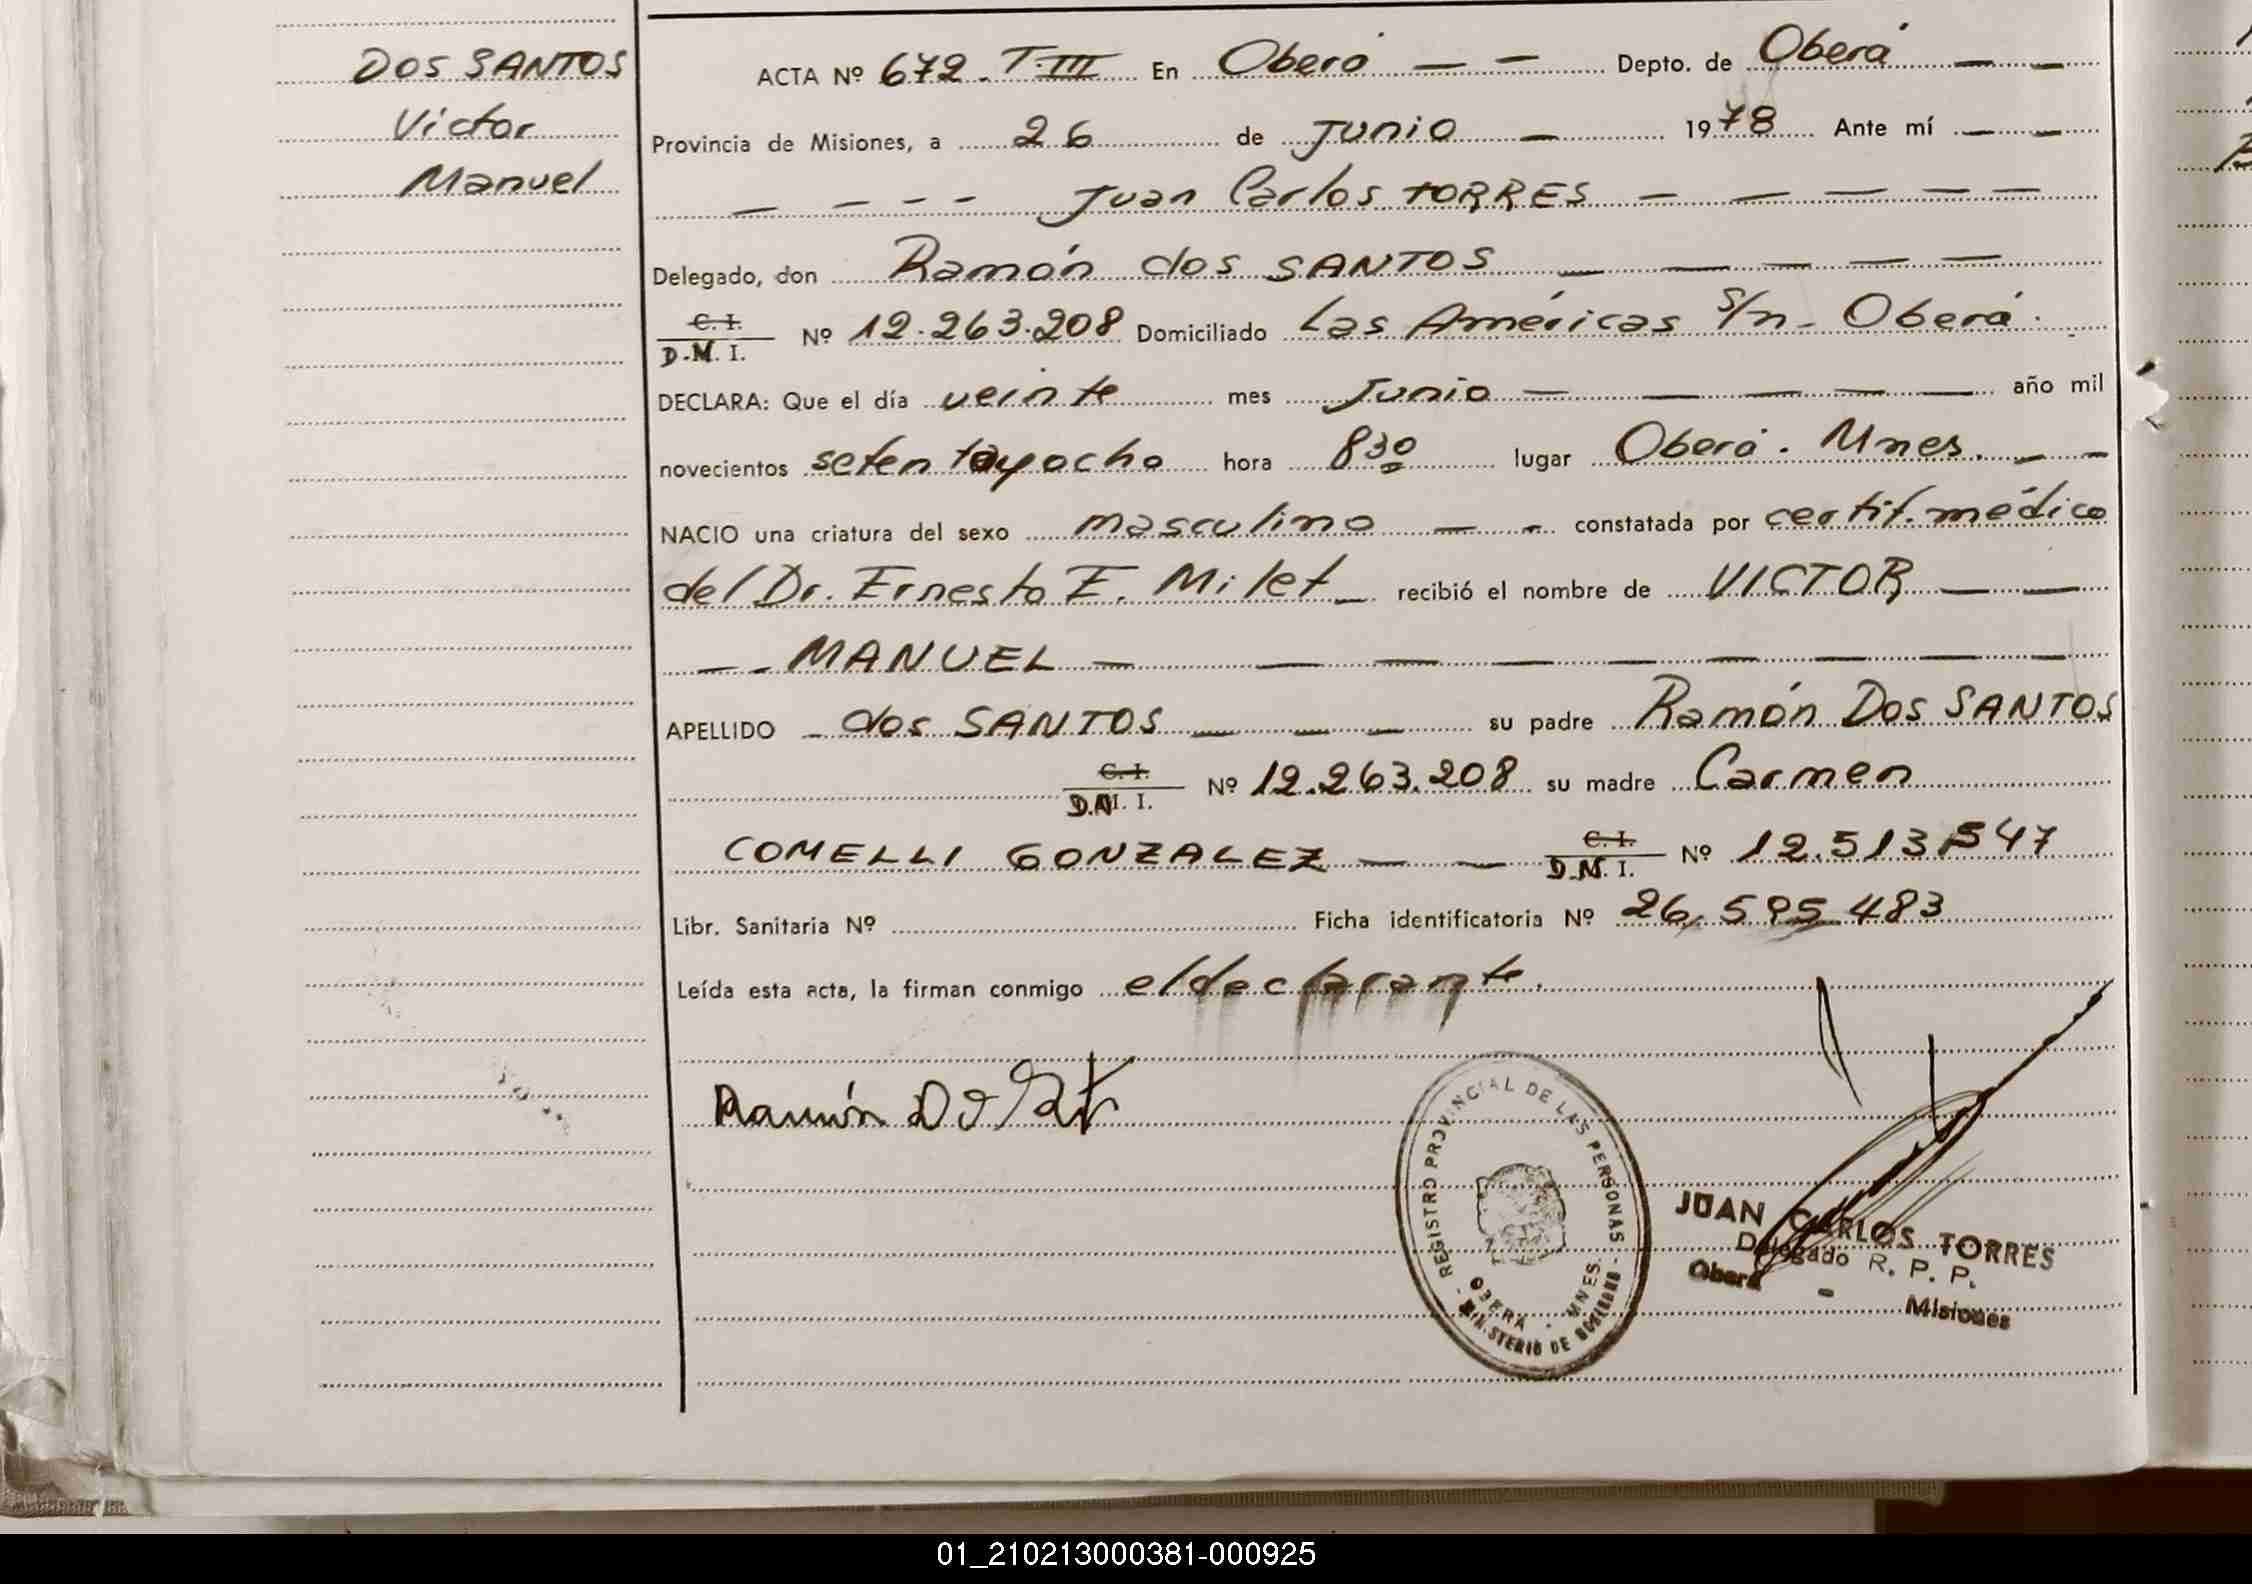 DOS SANTOS
Victor
Manuel
ACTA Nº 672. T III En Oberá — — Depto. de Oberá — —
Provincia de Misiones, a 26 de Junio — 1978 Ante mí — —
— — - - Juan Carlos TORRES — — — — —
Delegado, don Ramón dos SANTOS — — — — —
C. I.
D.N. I. Nº 12.263.208 Domiciliado Las Américas s/n - Oberá.
DECLARA: Que el día veinte mes Junio — — — — — año mil
novecientos setentayocho hora 8³⁰ lugar Oberá. Mnes. — —
NACIO una criatura del sexo masculino — - constatada por certif. médico
del Dr. Ernesto E. Milet — recibió el nombre de VICTOR — —
— - MANUEL — — — — — — — — —
APELLIDO - dos SANTOS — — — su padre Ramón Dos SANTOS
C. I.
D.N. I. Nº 12.263.208 su madre Carmen
COMELLI GONZALEZ — — C. I.
D.N. I. Nº 12.513.547
Libr. Sanitaria Nº Ficha identificatoria Nº 26,595 483
Leída esta acta, la firman conmigo el declarante.
Ramón
REGISTRO PROVINCIAL DE LAS PERSONAS
OBERA - MNES.
MINISTERIO DE GOBIERNO
JUAN CARLOS TORRES
Delegado R. P. P.
Oberá - Misiones
01_210213000381-000925